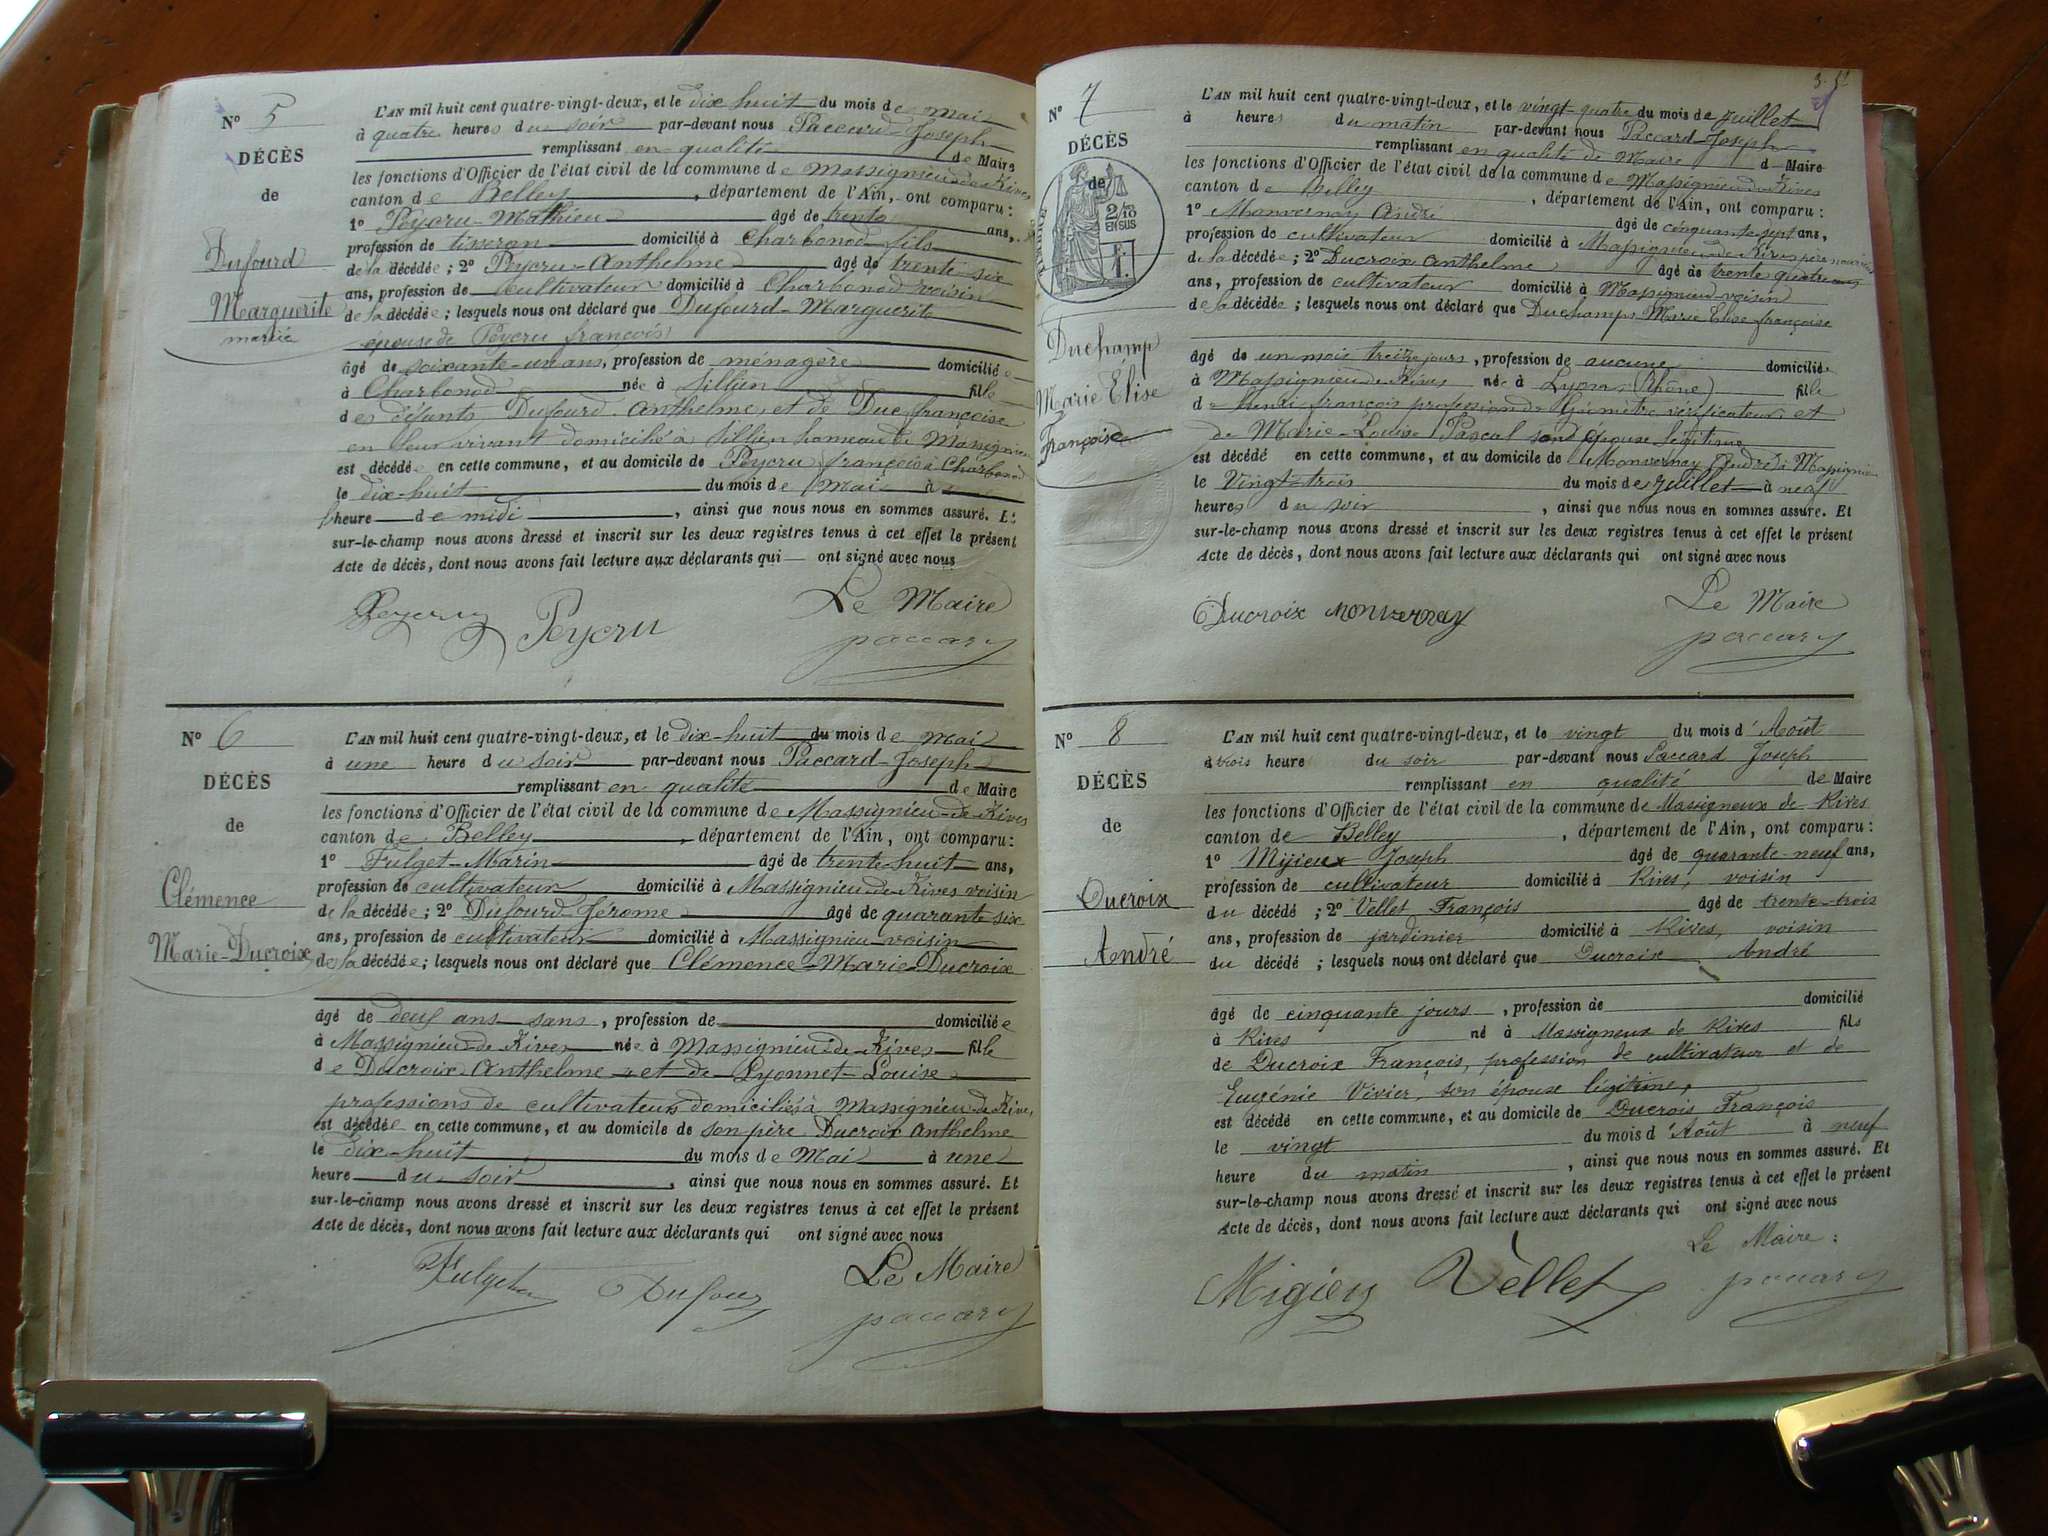 Nº 5
DÉCÈS
de
Dufourd
Marguerite
mariée
L'AN mil huit cent quatre-vingt-deux, et le dix huit du mois de Mai
à quatre heures du soir par-devant nous Paccard Joseph
remplissant en qualité de Maire
les fonctions d'Officier de l'état civil de la commune de Massignieu-de-Rives
canton de Belley, département de l'Ain, ont comparu :
1º Peycru Mathieu âgé de trente ans,
profession de tisseran domicilié à Charbonod fils
de la décédée ; 2º Peycru-Anthelme âgé de trente six
ans, profession de Cultivateur domicilié à Charbonod voisin
de la décédée ; lesquels nous ont déclaré que Dufourd-Marguerite
épouse de Peycru françois
âgé de soixante-un ans, profession de ménagère domiciliée
à Charbonod née à Sillien fille
des défunts Dufourd Anthelme et de Duc françoise
en leur vivant domicilié à Sillien hameau de Massignieu
est décédée en cette commune, et au domicile de Peycru françois à Charbonod
le dix-huit du mois de Mai à
heure de midi, ainsi que nous nous en sommes assuré. Et
sur-le-champ nous avons dressé et inscrit sur les deux registres tenus à cet effet le présent
Acte de décès, dont nous avons fait lecture aux déclarants qui ont signé avec nous
Peycru Peycru Le Maire
paccard
Nº 6
DÉCÈS
de
Clémence
Marie-Ducroix
L'AN mil huit cent quatre-vingt-deux, et le dix-huit du mois de Mai
à une heure du soir par-devant nous Paccard-Joseph
remplissant en qualité de Maire
les fonctions d'Officier de l'état civil de la commune de Massignieu-de-Rives
canton de Belley, département de l'Ain, ont comparu :
1º Fulget-Marin âgé de trente-huit ans,
profession de cultivateur domicilié à Massignieu-de-Rives voisin
de la décédée ; 2º Dufourd-Jérome âgé de quarante six
ans, profession de cultivateur domicilié à Massignieu voisin
de la décédée ; lesquels nous ont déclaré que Clémence-Marie-Ducroix
âgé de deux ans sans, profession de domiciliée
à Massignieu-de-Rives née à Massignieu-de-Rives fille
de Ducroix Anthelme et de Lyonnet-Louise
professions de cultivateurs domiciliés à Massignieu de Rives
est décédée en cette commune, et au domicile de son père Ducroix Anthelme
le dix-huit du mois de Mai à une
heure du soir, ainsi que nous nous en sommes assuré. Et
sur-le-champ nous avons dressé et inscrit sur les deux registres tenus à cet effet le présent
Acte de décès, dont nous avons fait lecture aux déclarants qui ont signé avec nous
Fulget Dufour Le Maire
paccard
Nº 7
DÉCÈS
de
2/10
EN SUS
Duchamp
Marie Elise
Françoise
L'AN mil huit cent quatre-vingt-deux, et le vingt-quatre du mois de Juillet
à heures du matin par-devant nous Paccard-Joseph
remplissant en qualité de Maire d Maire
les fonctions d'Officier de l'état civil de la commune de Massignieu de Rives
canton de Belley, département de l'Ain, ont comparu :
1º Monvernay André âgé de cinquante sept ans,
profession de cultivateur domicilié à Massignieu de Rives père nourricier
de la décédée ; 2º Ducroix Anthelme âgé de trente quatre
ans, profession de cultivateur domicilié à Massignieu voisin
de la décédée ; lesquels nous ont déclaré que Duchamps Marie Elise françoise
âgé de un mois treize jours, profession de aucune domiciliée
à Massignieu de Rives née à Lyon (Rhône) fille
de henri françois profession de Géomètre vérificateur et
de Marie-Louise Pascal son épouse légitime
est décédé en cette commune, et au domicile de Monvernay (André) à Massignieu
le Vingt-trois du mois de Juillet à neuf
heures du soir, ainsi que nous nous en sommes assuré. Et
sur-le-champ nous avons dressé et inscrit sur les deux registres tenus à cet effet le présent
Acte de décès, dont nous avons fait lecture aux déclarants qui ont signé avec nous
Ducroix Monvernay Le Maire
paccard
Nº 8
DÉCÈS
de
Ducroix
André
L'AN mil huit cent quatre-vingt-deux, et le vingt du mois d'Août
à trois heure du soir par-devant nous Paccard Joseph
remplissant en qualité de Maire
les fonctions d'Officier de l'état civil de la commune de Massigneux de Rives
canton de Belley, département de l'Ain, ont comparu :
1º Mijieux Joseph âgé de quarante-neuf ans,
profession de cultivateur domicilié à Rives, voisin
du décédé ; 2º Vellet François âgé de trente-trois
ans, profession de jardinier domicilié à Rives, voisin
du décédé ; lesquels nous ont déclaré que Ducroix André
âgé de cinquante jours, profession de domicilié
à Rives né à Massigneux de Rives fils
de Ducroix François, profession de cultivateur et de
Eugénie Vivier, son épouse légitime,
est décédé en cette commune, et au domicile de Ducrois François
le vingt du mois d'Août à neuf
heure du matin, ainsi que nous nous en sommes assuré. Et
sur-le-champ nous avons dressé et inscrit sur les deux registres tenus à cet effet le présent
Acte de décès, dont nous avons fait lecture aux déclarants qui ont signé avec nous
Le Maire :
Migieu Vellet paccard